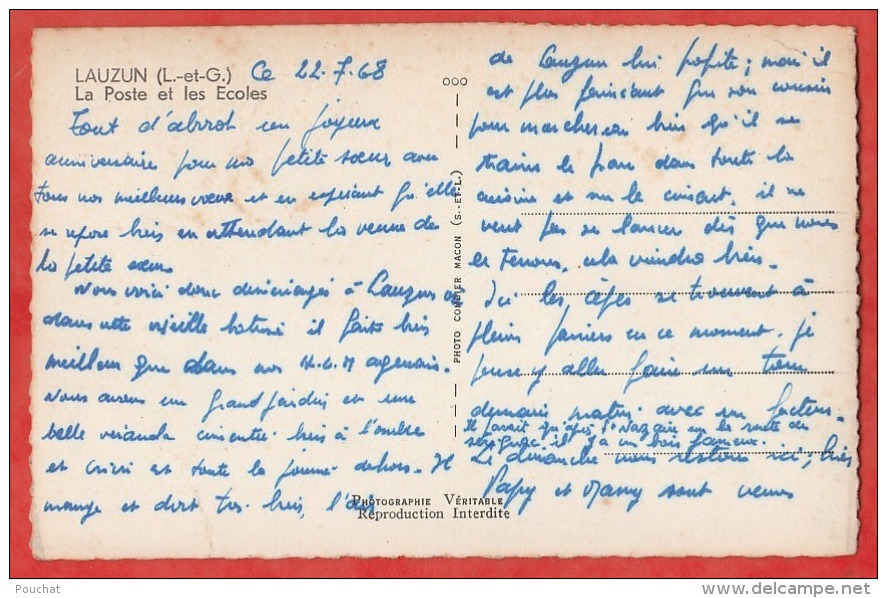 LAUZUN (L.-et-G.) Ce 22-7-68
La Poste et les Ecoles
Tout d'abord un joyeux
anniversaire pour nos petite sœur avec
tous nos meilleurs vœux et en espérant qu'elle
se repose bien en attendant la venue de
la petite sœur
Nous voici donc à Lauzun
dans cette vieille il fait bien
meilleur que dans nos H.L.M agenais.
Nous avons un grand jardin et une
belle véranda cimentée bien à l'ombre
et est toute la journée dehors. Il
mange et dort très bien, l'air
PHOTOGRAPHIE VÉRITABLE
Reproduction Interdite
PHOTO COMBIER MACON (S.-ET-L.)
de Lauzun lui profite; mais il
est plus fainéant que son cousin
pour marcher ou bien qu'il se
traine le parc dans toute la
cuisine et sur le ciment, il ne
veut pas se lancer dès que nous
le tenons, cela viendra bien.
Ici les cèpes se trouvent à
pleins paniers en ce moment. je
pense y aller faire un tour
demain matin avec un facteur.
Il parait qu'après St Nazaire sur la route de
il y a un bois fameux.
Le dimanche nous restons ici; hier
Papy et Mamy sont venus
Pouchat
www.delcampe.net